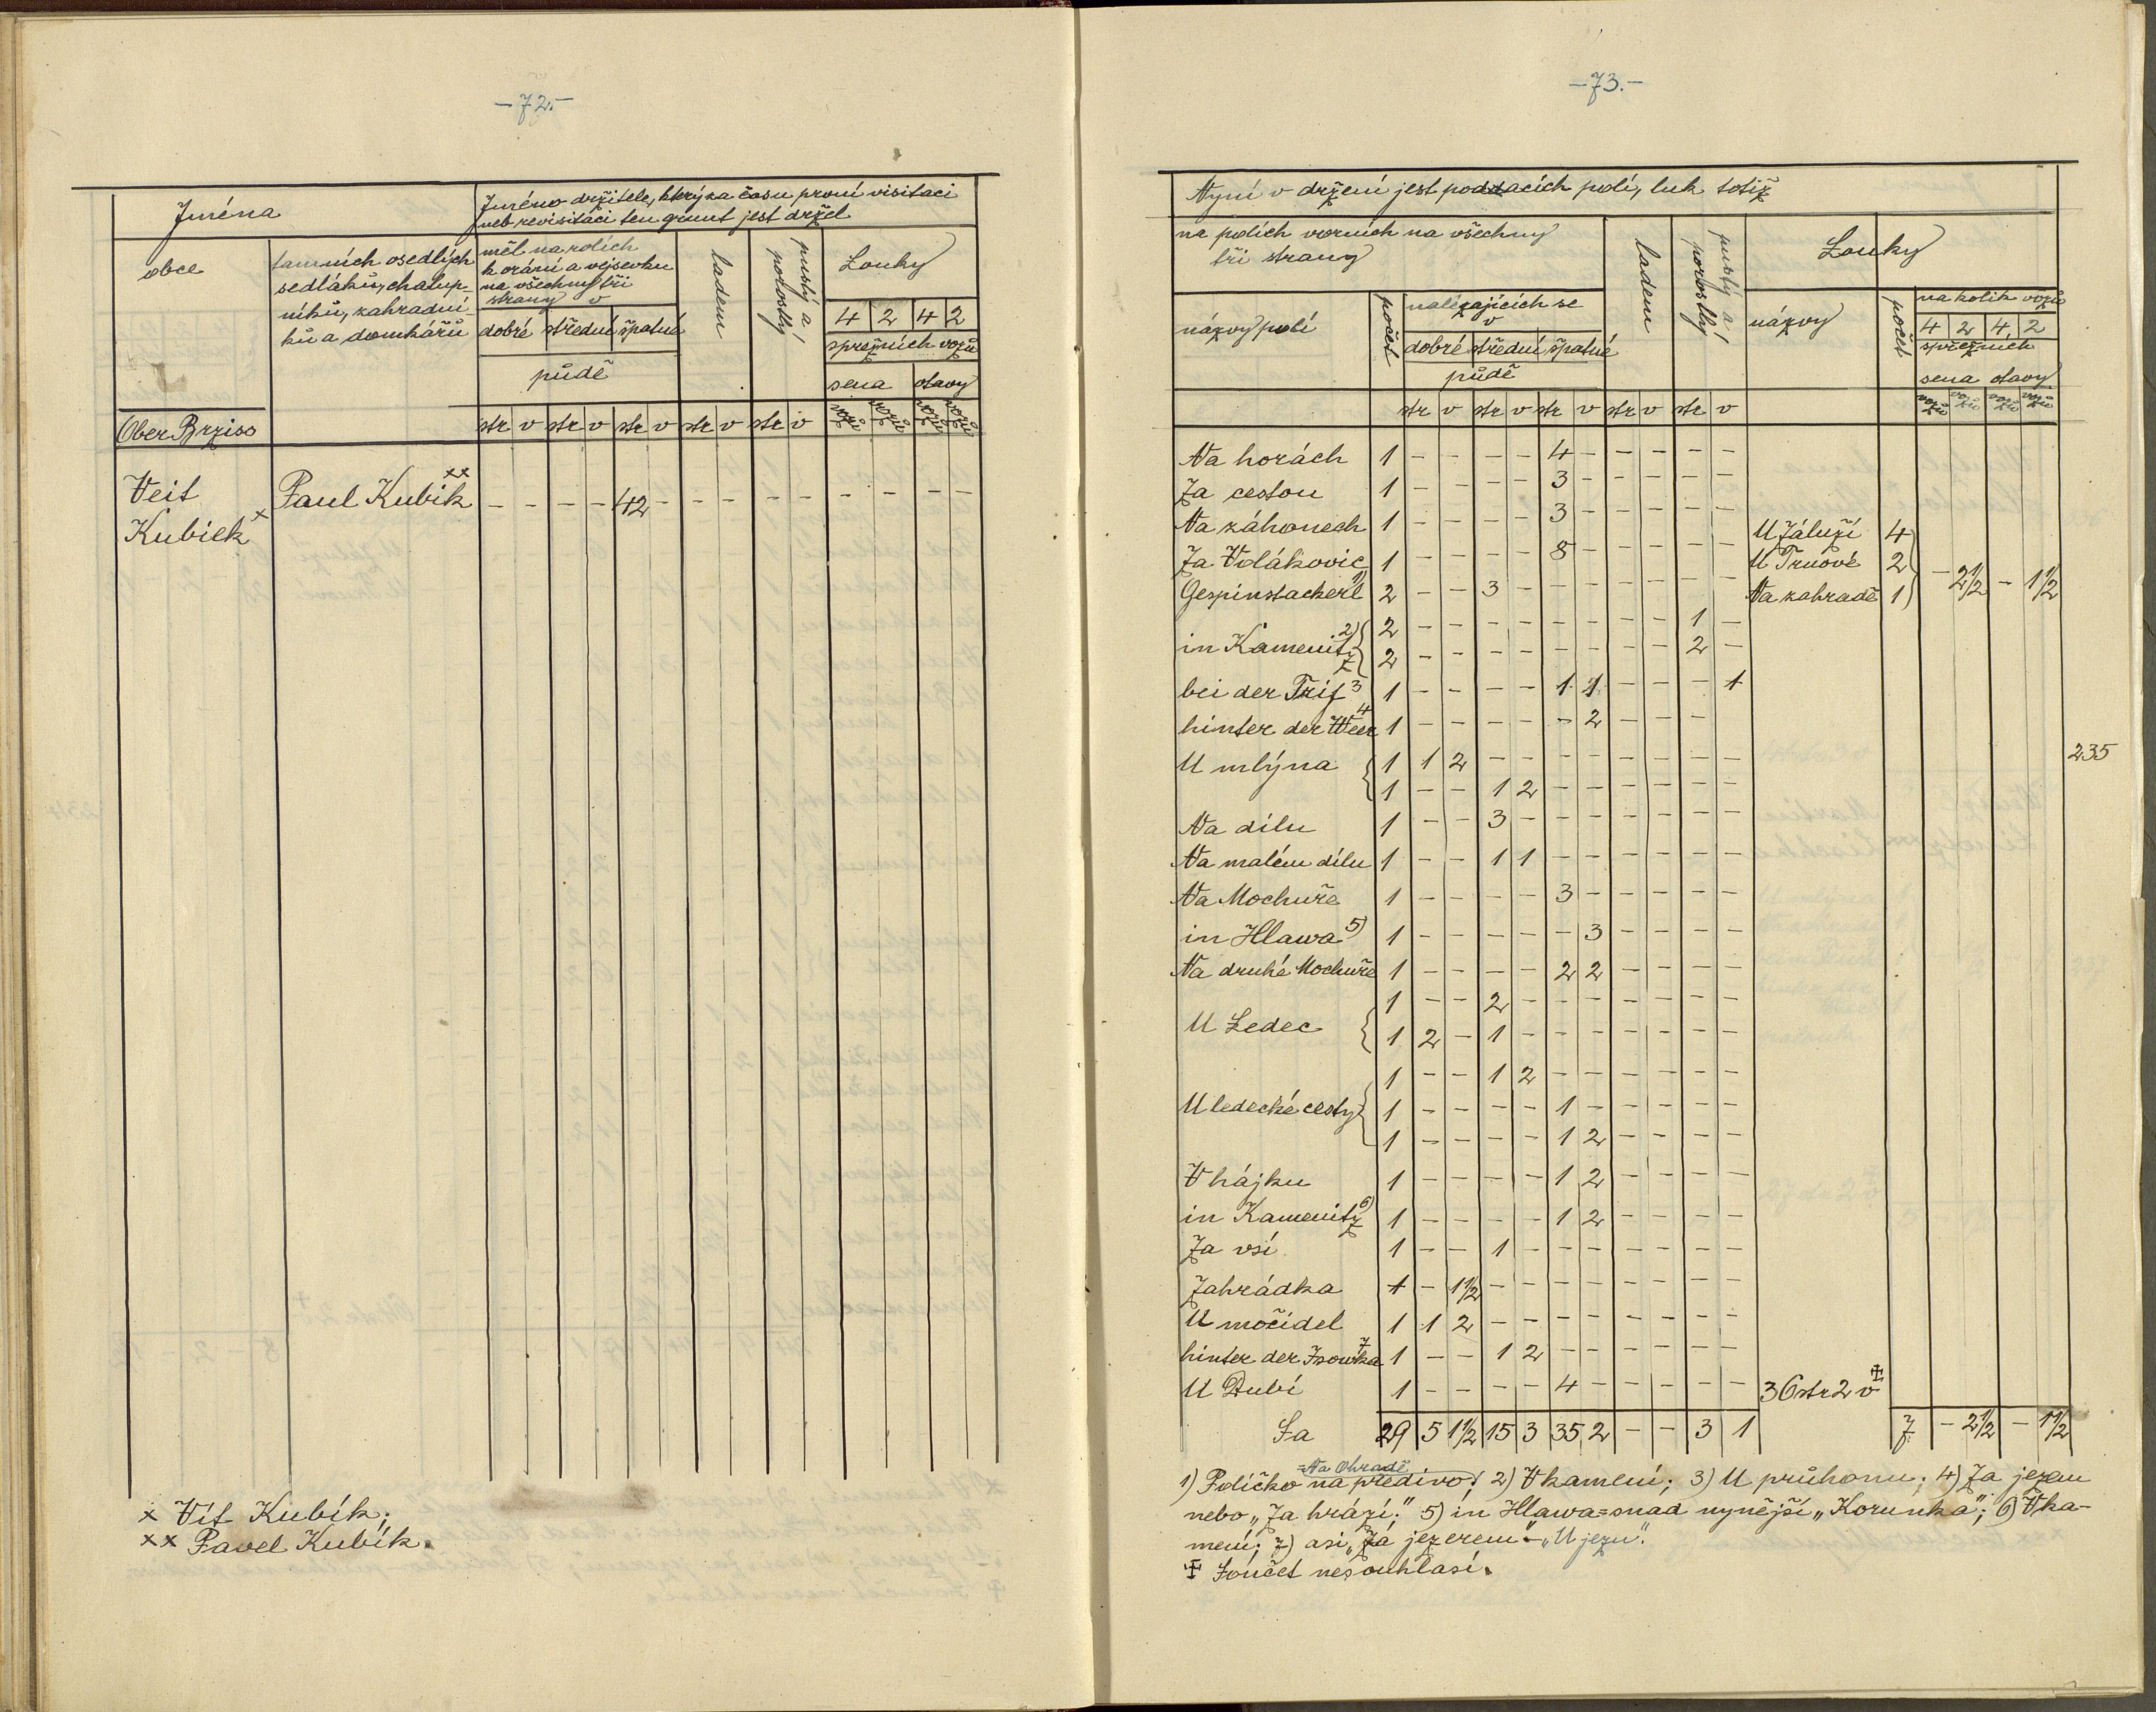 -72.-
Jména
Jméno držitele, který za času první visitací
neb revisitací ten grunt jest držel
obce
tamních osedlých
sedláků, chalup-
níků, zahradní-
ků a domkářů
měl na rolích
k orání a vejsevku
na všechny tři
strany v
dobré střední špatné
půdě
ladem
pustý a
porostlý
Louky
4 2 4 2
spřežních vozů
sena otavy
Ober Brziso
str v str v str v str v str v vozů vozů vozů vozů
Veit Paul Kubik xx - - - - 42 - - - - - - - - -
Kubick x
x Vít Kubík;
xx Pavel Kubík.
-73.-
Nyní v držení jest poddacích polí, luk totiž
na polích vorních na všechny
tři strany
ladem
pustý a
porostlý
Louky
názvy polí
počet
nalézajících se
v
dobré střední špatné
půdě
názvy
počet
na kolik vozů
4 2 4 2
spřežních
sena otavy
str v str v str v str v str v vozů vozů vozů vozů
Na horách 1 - - - - 4 - - - - -
Za cestou 1 - - - - 3 - - - - -
Na záhonech 1 - - - - 3 - - - - - U Záluží 4
Za Volákovic 1 - - - - 8 - - - - - U Trnové 2 - 2½ - 1½
Gespinstackerl 1) 2 - - 3 - - - - - - - Na zahradě 1
in Kamenitz 2) 2 - - - - - - - - 1 -
2 - - - - - - - - 2 -
bei der Trif 3 1 - - - - 1 1 - - - 1
hinter der Weer 4 1 - - - - - 2 - - -
U mlýna 1 1 2 - - - - - - - -
235
1 - - 1 2 - - - - - -
Na dílu 1 - - 3 - - - - - - -
Na malém dílu 1 - - 1 1 - - - - - -
Na Mochuře 1 - - - - 3 - - - - -
in Hlawa 5) 1 - - - - - 3 - - - -
Na druhé Mochuře 1 - - - - 2 2 - - - -
1 - - 2 - - - - - - -
U Ledec 1 2 - 1 - - - - - - -
1 - - 1 2 - - - - - -
U ledecké cesty 1 - - - - 1 - - - - -
1 - - - - 1 2 - - - -
V hájku 1 - - - - 1 2 - - - -
in Kamenitz 6) 1 - - - - 1 2 - - - -
Za vsí 1 - - 1 - - - - - - -
Zahrádka 1 - 1½ - - - - - - - -
U močidel 1 1 2 - - - - - - - -
hinter der Isowka 7 1 - - 1 2 - - - - - -
U Dubí 1 - - - - 4 - - - - - 36 str 2 v ‡
Sa 29 5 1½ 15 3 35 2 - - 3 1 7 - 2½ - 1½
=Na Ohradě
1) Políčko na předivo; 2) V kamení; 3) U průhonu; 4) Za jezem
nebo „Za hrází;" 5) in Hlawa = snad nynější „Korunka"; 6) V ka-
mení; 7) asi „Za jezerem" - „U jezu".
‡ Součet nesouhlasí.